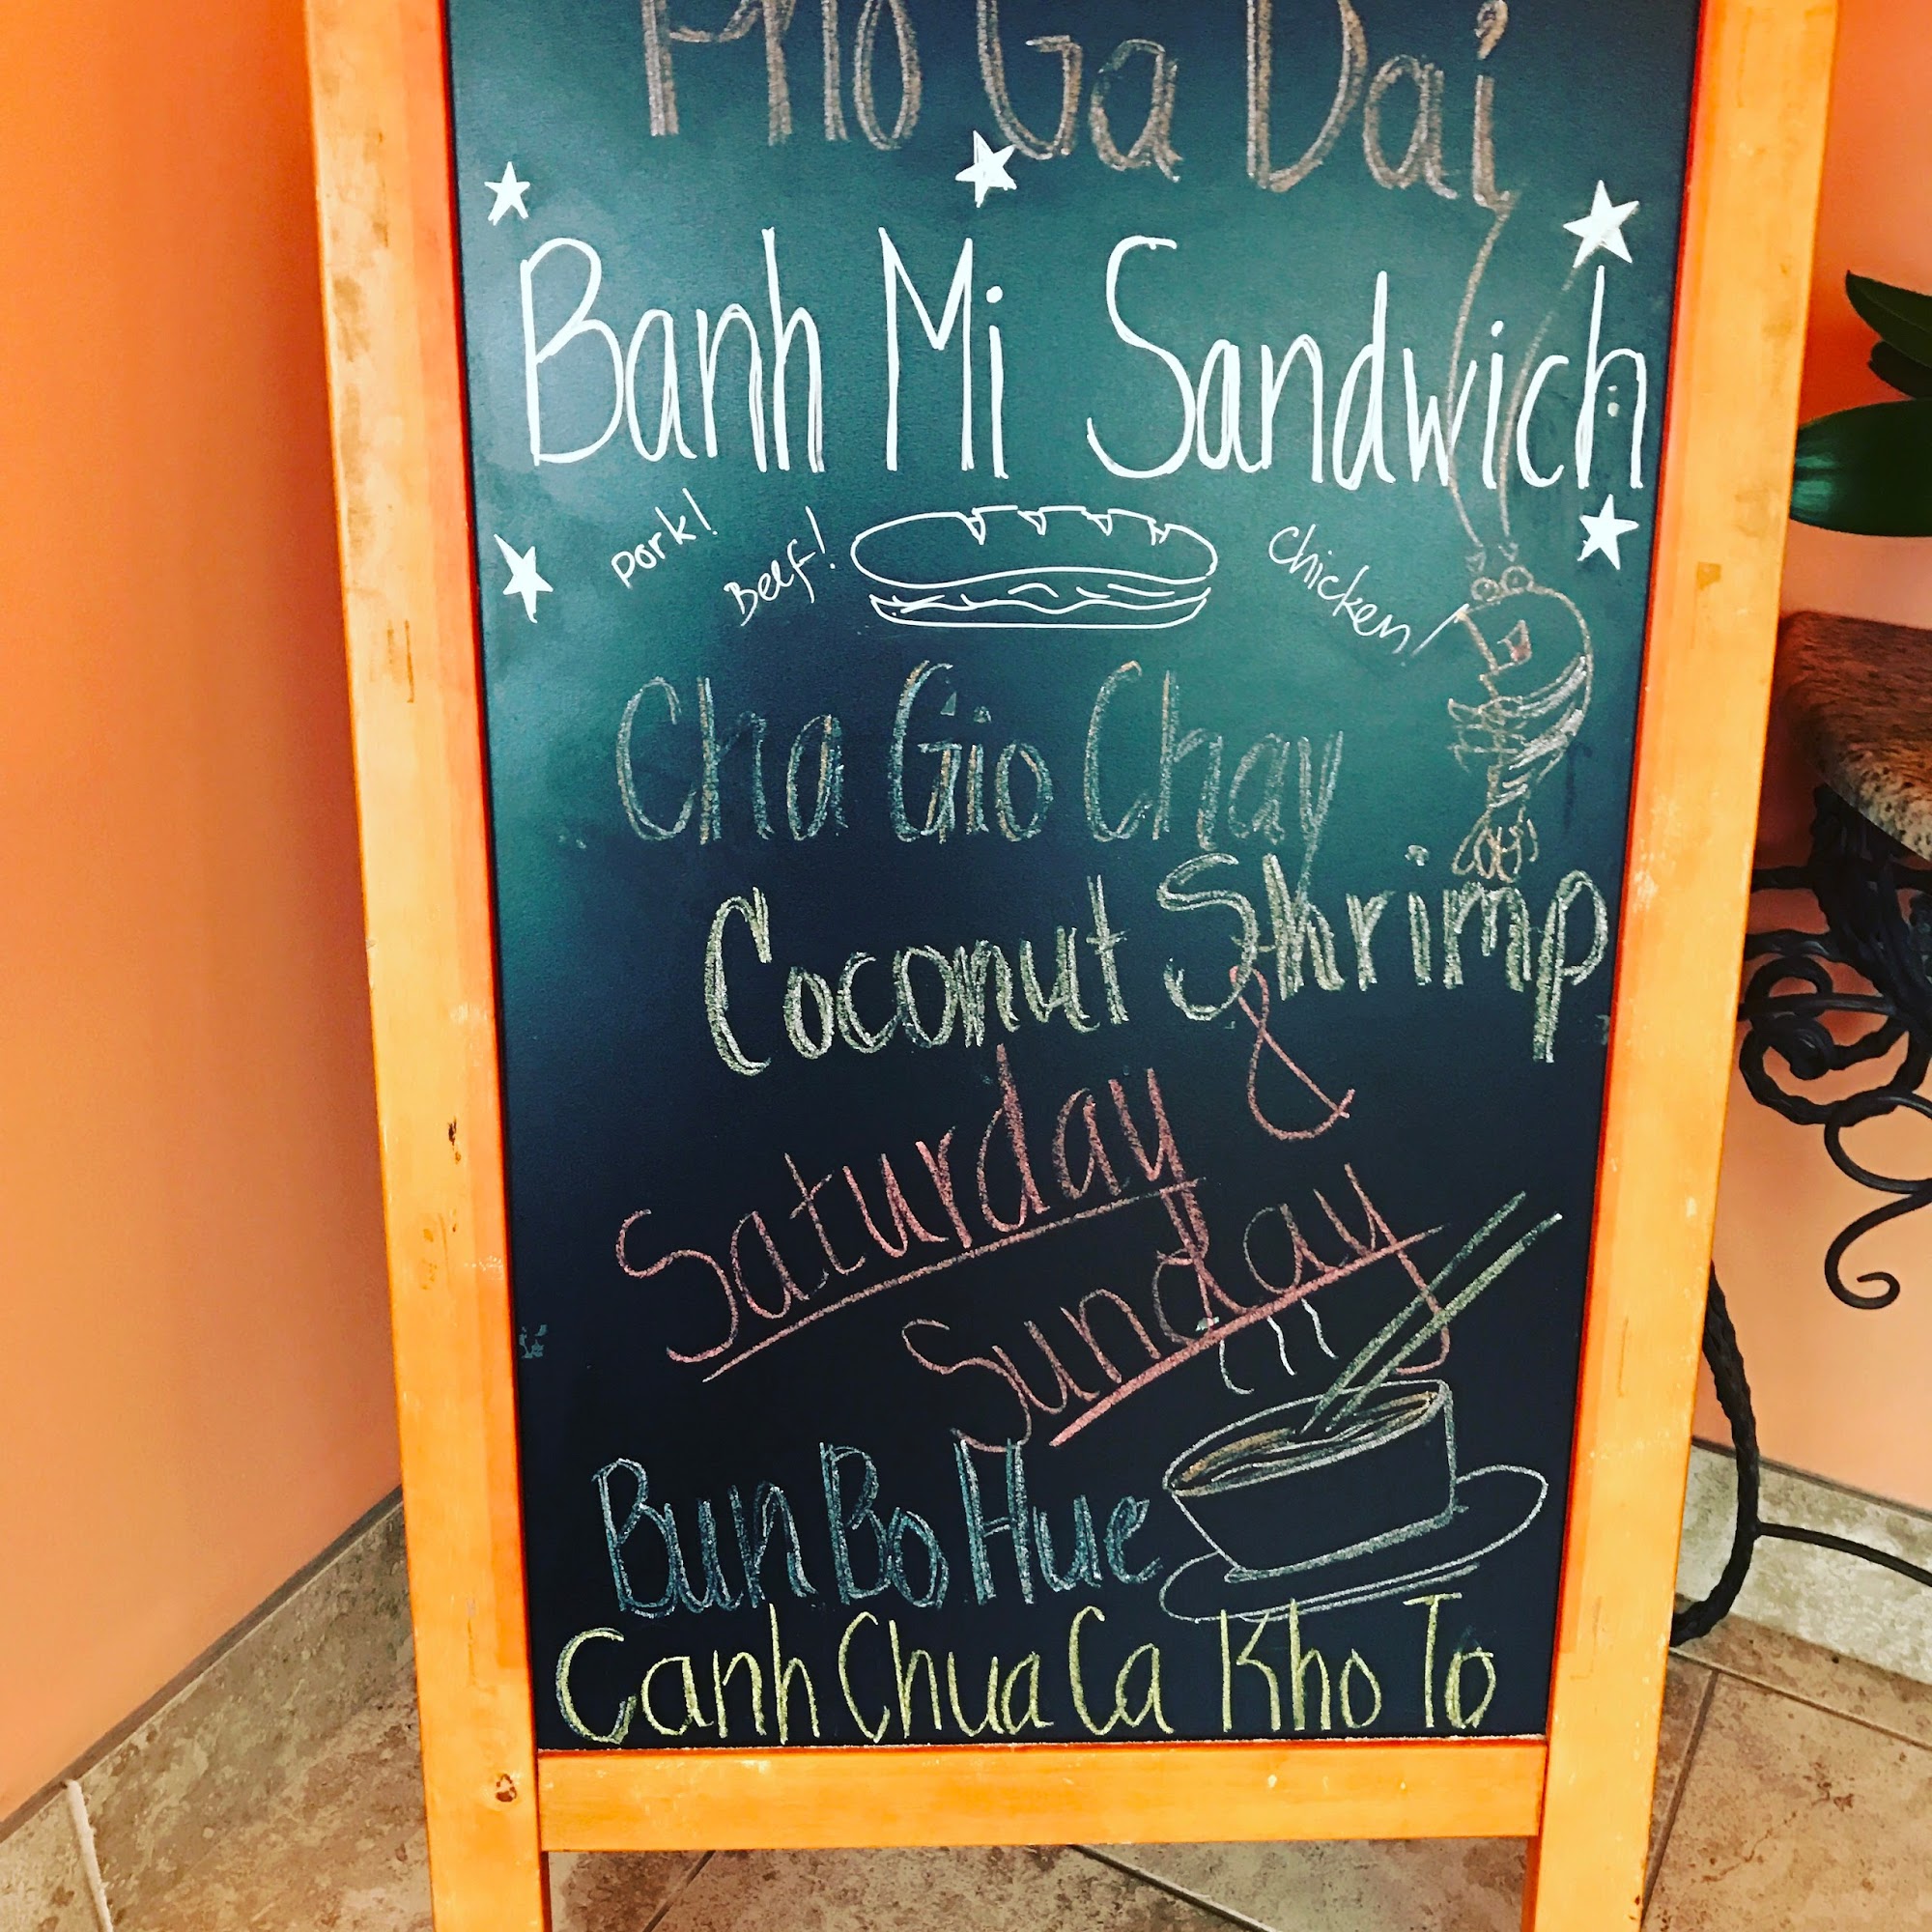 Pho Ga Dai
Banh Mi Sandwich
pork! Beef! Chicken!
Cha Gio Chay
Coconut Shrimp
Saturday &
Sunday
Bun Bo Hue
Canh Chua Ca Kho To